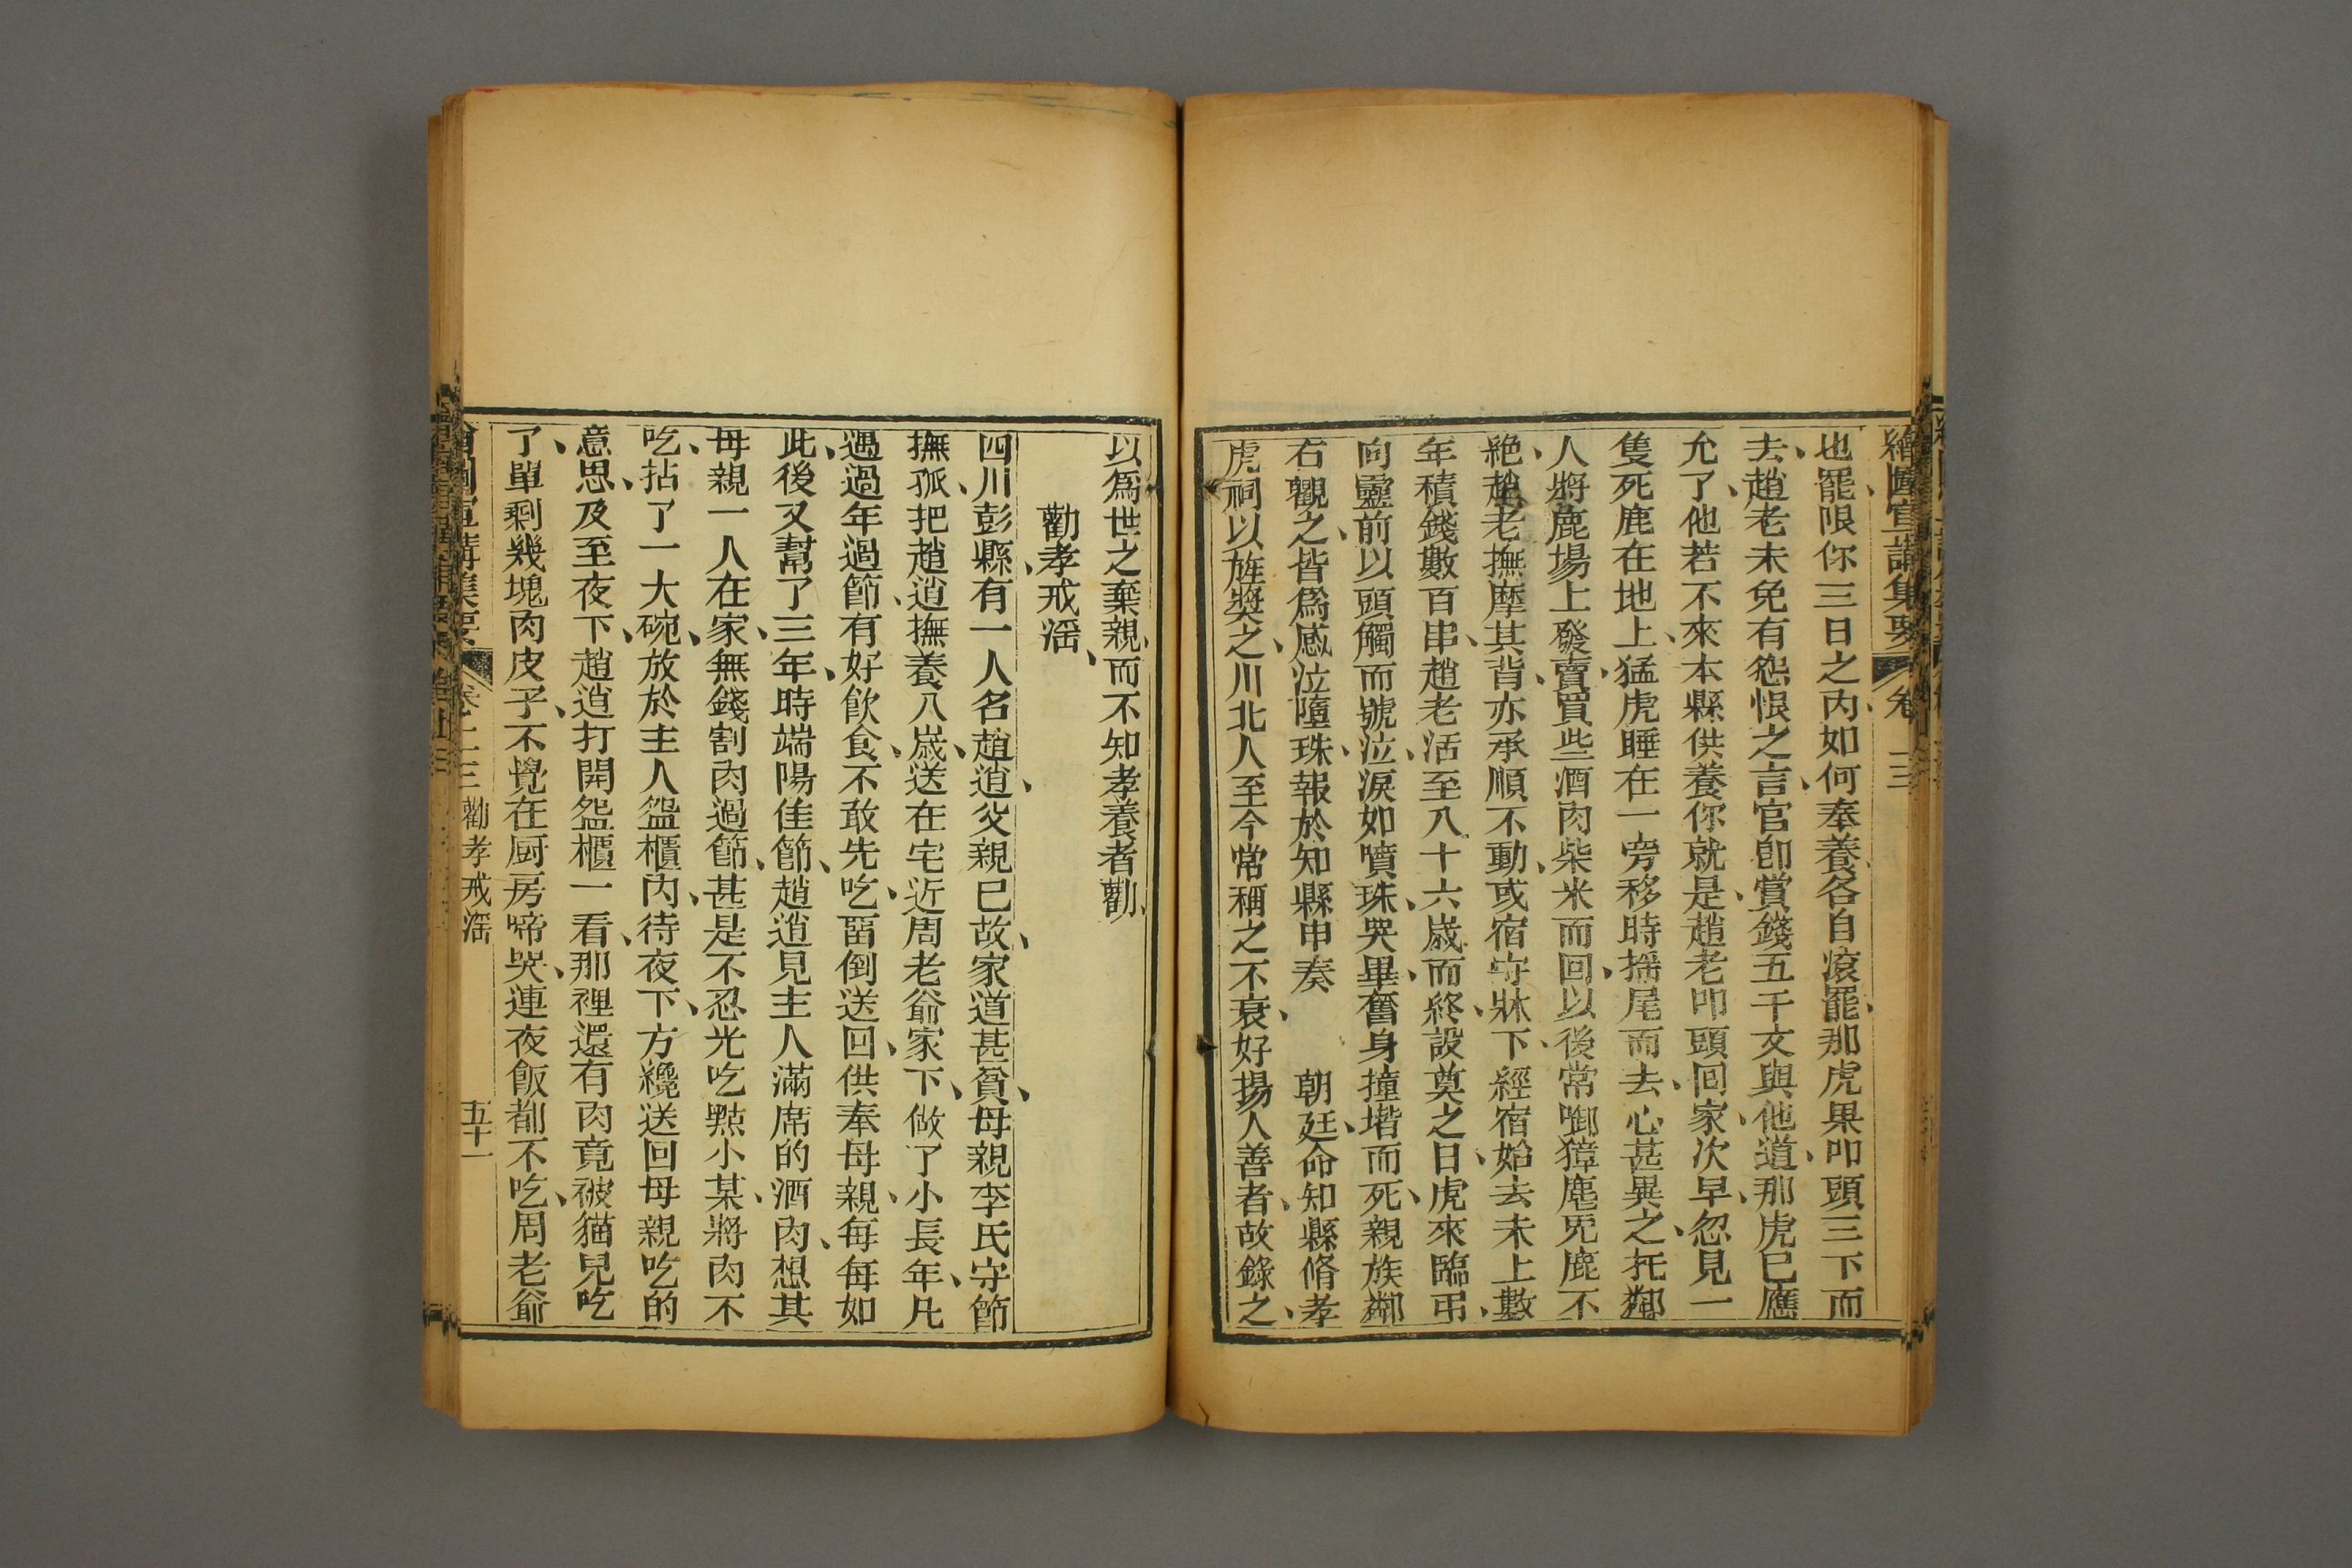 繪圖宣講集要 卷十三
也罷、限你三日之內、如何奉養、各自滾罷、那虎果叩頭三下而
去、趙老未免有怨恨之言、官卽賞錢五千文與他、道、那虎已應
允了、他若不來、本縣供養你就是、趙老叩頭回家、次早、忽見一
隻死鹿在地上、猛虎睡在一旁、移時搖尾而去、心甚異之、托鄰
人將鹿場上發賣、買些酒肉柴米而回、以後常啣獐麂兕鹿不
絶、趙老撫摩其背、亦承順不動、或宿守牀下、經宿始去、未上數
年積錢數百串、趙老活至八十六歲而終、設奠之日、虎來臨弔、
向靈前以頭觸而號泣、淚如噴珠、哭畢、奮身撞堦而死、親族鄰
右觀之、皆爲感泣墮珠、報於知縣申奏 朝廷、命知縣脩孝
虎祠以旌獎之、川北人至今常稱之不衰、好揚人善者、故錄之、
以爲世之棄親、而不知孝養者勸、
勸孝戒滛、
四川彭縣、有一人名趙逍、父親已故、家道甚貧、母親李氏守節
撫孤、把趙逍撫養八歲、送在宅近周老爺家下、做了小長年、凡
遇過年過節、有好飲食、不敢先吃、畱倒送回、供奉母親、每每如
此、後又幫了三年、時端陽佳節、趙逍見主人滿席的酒肉、想其
母親一人在家、無錢割肉過節、甚是不忍、光吃點小某、將肉不
吃、拈了一大碗、放於主人盌櫃內、待夜下、方纔送回母親吃的
意思、及至夜下、趙逍打開盌櫃一看、那裡還有肉、竟被猫兒吃
了、單剩幾塊肉皮子、不覺在厨房啼哭、連夜飯都不吃、周老爺
繪圖宣講集要 卷十三 勸孝戒滛 五十一